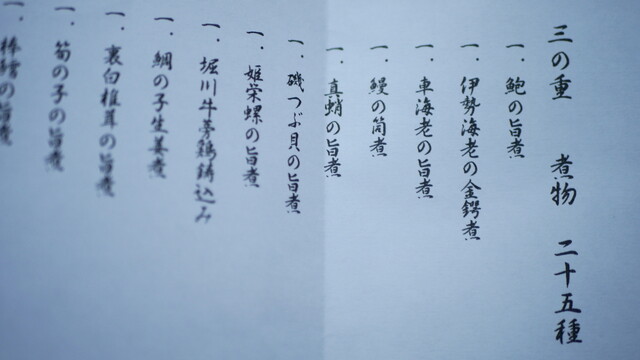 三の重 煮物 二十五種
一．鮑の旨煮
一．伊勢海老の金鍔煮
一．車海老の旨煮
一．鰻の筒煮
一．真蛸の旨煮
一．磯つぶ貝の旨煮
一．姫栄螺の旨煮
一．堀川牛蒡鶏鋳込み
一．鯛の子生姜煮
一．裏白椎茸の旨煮
一．筍の子の旨煮
一．の旨煮